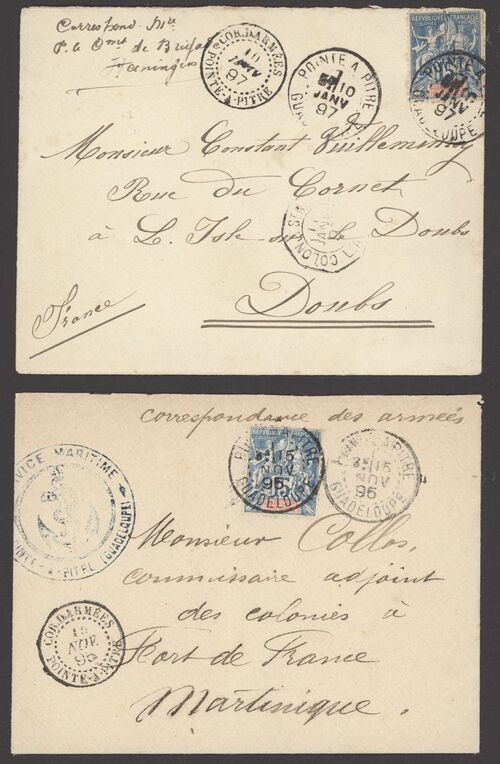 Correspond. Mre
P. le Cmt de
COR. D. ARMÉES
10
JANV
97
POINTE-A-PITRE
POINTE A PITRE
10
JANV
97
GUADELOUPE
RÉPUBLIQUE FRANÇAISE
POINTE A PITRE
JANV
97
GUADELOUPE
Monsieur Constant Vuillemeney
Rue du Cornet
à L'Isle sur le Doubs
COLON
JANV
Doubs
France
correspondance des armées
SERVICE MARITIME
POINTE-A-PITRE (GUADELOUPE)
POINTE A PITRE
15
NOV
95
GUADELOUPE
15
POINTE A PITRE
15
NOV
95
GUADELOUPE
Monsieur Collos,
commissaire adjoint
des colonies à
COR. D. ARMÉES
15
NOV.
95
POINTE-A-PITRE
Fort de France
Martinique.